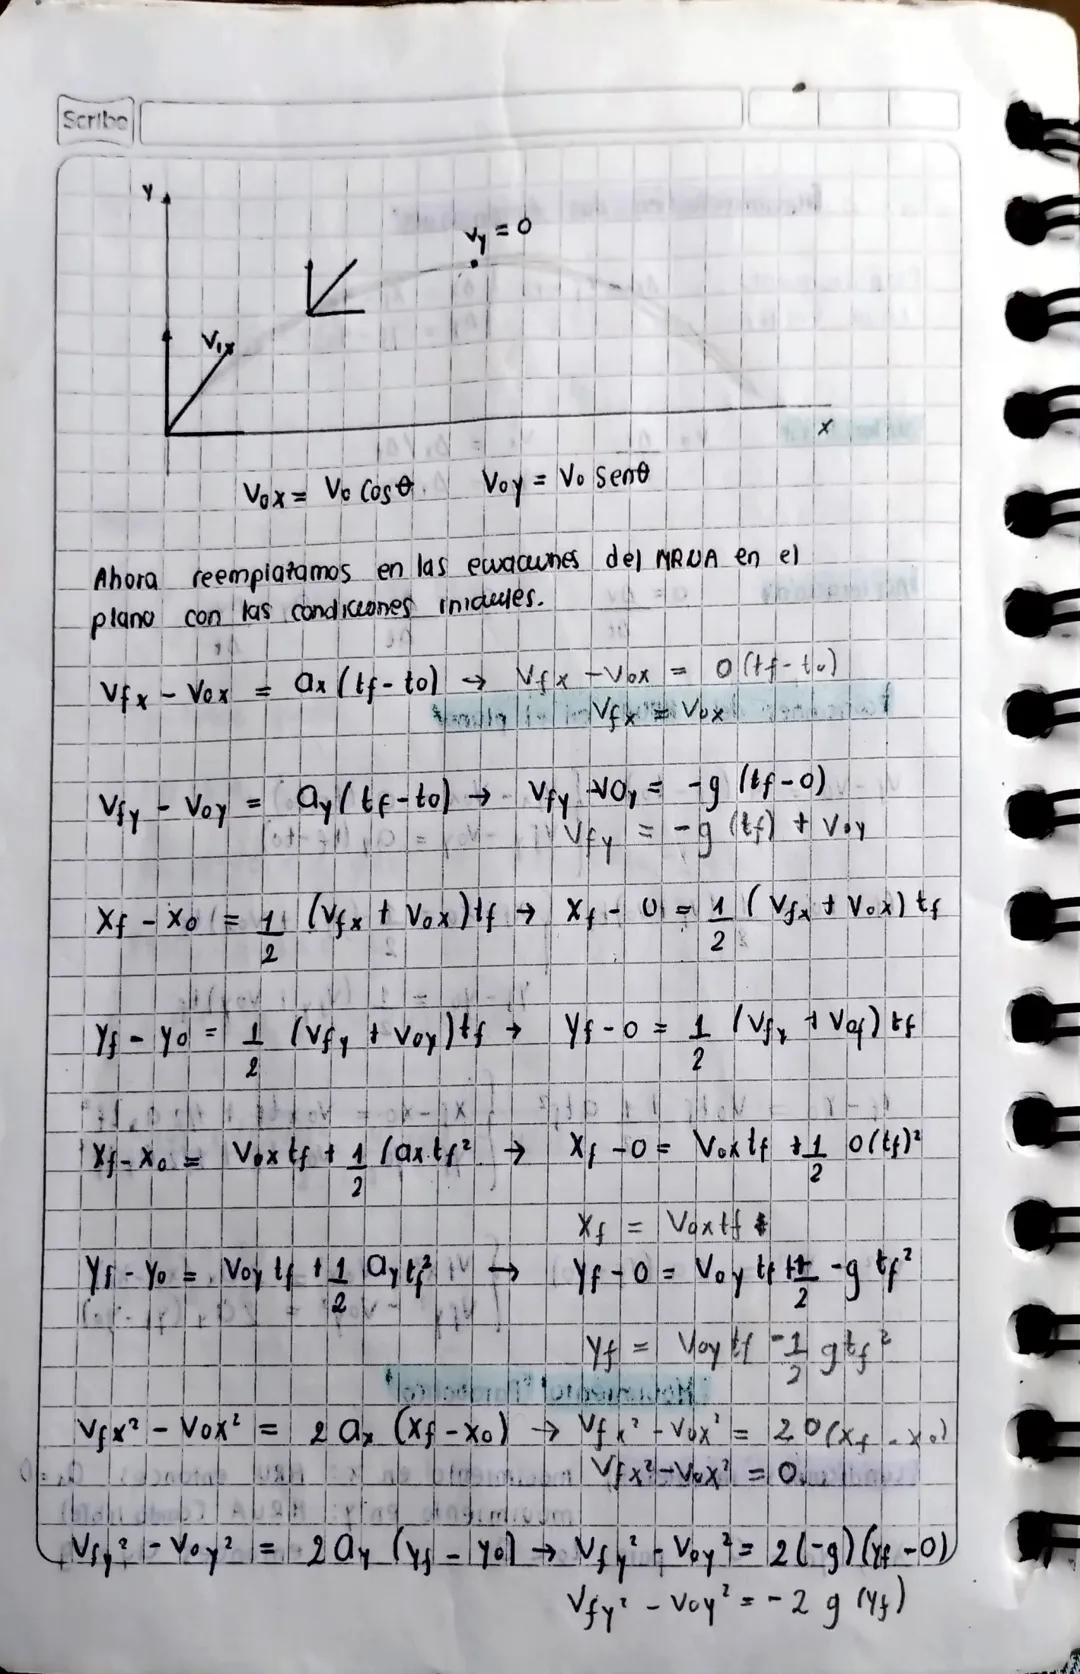 Scribe
Y
Vy = 0
V1x
x
V0x = V0 Cosθ. Voy = Vo Senθ
Ahora reemplazamos en las ecuaciones del MRUA en el
plano con las condiciones iniciales.
Vfx - Vox = ax (tf - to) → Vfx - Vox = 0 (tf - to)
Vfx = Vox
Vfy - Voy = ay (tf - to) → Vfy - Voy = -g (tf - 0)
Vfy = -g (tf) + Voy
Xf - Xo = 1/2 (Vfx + Vox) tf → Xf - 0 = 1/2 (Vfx + Vox) tf
Yf - Yo = 1/2 (Vfy + Voy) tf → Yf - 0 = 1/2 (Vfy + Voy) tf
Xf - Xo = Vox tf + 1/2 (ax tf² → Xf - 0 = Vox tf + 1/2 0 (tf)²
Xf = Vox tf
Yf - Yo = Voy tf + 1/2 ay tf² → Yf - 0 = Voy tf + 1/2 -g tf²
Yf = Voy tf - 1/2 g tf²
Vfx² - Vox² = 2 ax (Xf - Xo) → Vfx² - Vox² = 2 0 (Xf - Xo)
Vfx² - Vox² = 0
Vfy² - Voy² = 2 ay (Yf - Yo) → Vfy² - Voy² = 2 (-g) (Yf - 0)
Vfy² - Voy² = -2 g (Yf)